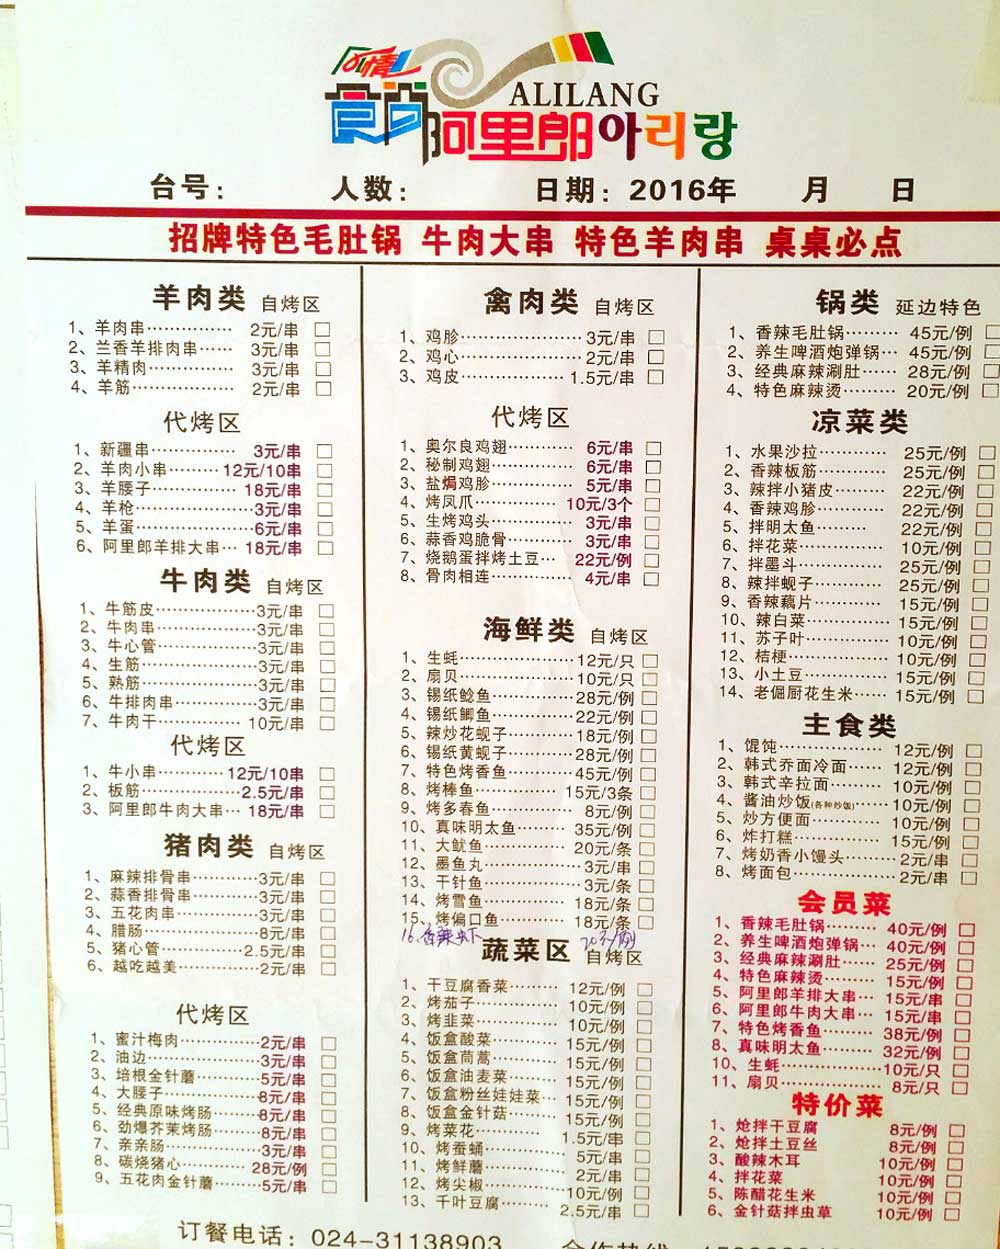 风情
食尚
ALILANG
阿里郎아리랑
台号: 人数: 日期: 2016年 月 日
招牌特色毛肚锅 牛肉大串 特色羊肉串 桌桌必点
羊肉类 自烤区
1、羊肉串 2元/串 □
2、兰香羊排肉串 3元/串 □
3、羊精肉 3元/串 □
4、羊筋 2元/串 □
代烤区
1、新疆串 3元/串 □
2、羊肉小串 12元/10串 □
3、羊腰子 18元/串 □
4、羊枪 3元/串 □
5、羊蛋 6元/串 □
6、阿里郎羊排大串 18元/串 □
牛肉类 自烤区
1、牛筋皮 3元/串 □
2、牛肉串 3元/串 □
3、牛心管 3元/串 □
4、生筋 3元/串 □
5、熟筋 3元/串 □
6、牛排肉串 3元/串 □
7、牛肉干 10元/串 □
代烤区
1、牛小串 12元/10串 □
2、板筋 2.5元/串 □
3、阿里郎牛肉大串 18元/串 □
猪肉类 自烤区
1、麻辣排骨串 3元/串 □
2、蒜香排骨串 3元/串 □
3、五花肉串 3元/串 □
4、腊肠 8元/串 □
5、猪心管 2.5元/串 □
6、越吃越美 2元/串 □
代烤区
1、蜜汁梅肉 2元/串 □
2、油边 3元/串 □
3、培根金针蘑 5元/串 □
4、大腰子 8元/串 □
5、经典原味烤肠 8元/串 □
6、劲爆芥茉烤肠 8元/串 □
7、亲亲肠 3元/串 □
8、碳烧猪心 28元/例 □
9、五花肉金针蘑 5元/串 □
禽肉类 自烤区
1、鸡胗 3元/串 □
2、鸡心 2元/串 □
3、鸡皮 1.5元/串 □
代烤区
1、奥尔良鸡翅 6元/串 □
2、秘制鸡翅 6元/串 □
3、盐焗鸡胗 5元/串 □
4、烤凤爪 10元/3个 □
5、生烤鸡头 3元/串 □
6、蒜香鸡脆骨 3元/串 □
7、烧鹅蛋拌烤土豆 22元/例 □
8、骨肉相连 4元/串 □
海鲜类 自烤区
1、生蚝 12元/只 □
2、扇贝 10元/只 □
3、锡纸鲶鱼 28元/例 □
4、锡纸鲫鱼 22元/例 □
5、辣炒花蚬子 18元/例 □
6、锡纸黄蚬子 28元/例 □
7、特色烤香鱼 45元/例 □
8、烤棒鱼 15元/3条 □
9、烤多春鱼 8元/例 □
10、真味明太鱼 35元/例 □
11、大鱿鱼 20元/条 □
12、墨鱼丸 3元/串 □
13、干针鱼 3元/条 □
14、烤雪鱼 18元/条 □
15、烤偏口鱼 18元/条 □
16.香辣虾 20元/例
蔬菜区 自烤区
1、干豆腐香菜 12元/例 □
2、烤茄子 10元/例 □
3、烤韭菜 10元/例 □
4、饭盒酸菜 15元/例 □
5、饭盒茼蒿 15元/例 □
6、饭盒油麦菜 15元/例 □
7、饭盒粉丝娃娃菜 15元/例 □
8、饭盒金针菇 15元/例 □
9、烤菜花 1.5元/串 □
10、烤蚕蛹 5元/串 □
11、烤鲜蘑 2元/串 □
12、烤尖椒 10元/例 □
13、千叶豆腐 2.5元/串 □
锅类 延边特色
1、香辣毛肚锅 45元/例 □
2、养生啤酒炮弹锅 45元/例 □
3、经典麻辣涮肚 28元/例 □
4、特色麻辣烫 20元/例 □
凉菜类
1、水果沙拉 25元/例 □
2、香辣板筋 25元/例 □
3、辣拌小猪皮 22元/例 □
4、香辣鸡胗 22元/例 □
5、拌明太鱼 22元/例 □
6、拌花菜 10元/例 □
7、拌墨斗 25元/例 □
8、辣拌蚬子 25元/例 □
9、香辣藕片 15元/例 □
10、辣白菜 15元/例 □
11、苏子叶 10元/例 □
12、桔梗 10元/例 □
13、小土豆 15元/例 □
14、老倔厨花生米 15元/例 □
主食类
1、馄饨 12元/例 □
2、韩式乔面冷面 12元/例 □
3、韩式辛拉面 10元/例 □
4、酱油炒饭(各种炒饭) 10元/例 □
5、炒方便面 10元/例 □
6、炸打糕 15元/例 □
7、烤奶香小馒头 2元/串 □
8、烤面包 2元/串 □
会员菜
1、香辣毛肚锅 40元/例 □
2、养生啤酒炮弹锅 40元/例 □
3、经典麻辣涮肚 25元/例 □
4、特色麻辣烫 15元/例 □
5、阿里郎羊排大串 15元/串 □
6、阿里郎牛肉大串 15元/串 □
7、特色烤香鱼 38元/例 □
8、真味明太鱼 32元/例 □
10、生蚝 10元/只 □
11、扇贝 8元/只 □
特价菜
1、炝拌干豆腐 8元/例 □
2、炝拌土豆丝 8元/例 □
3、酸辣木耳 10元/例 □
4、拌花菜 10元/例 □
5、陈醋花生米 10元/例 □
6、金针菇拌虫草 10元/例 □
订餐电话: 024-31138903